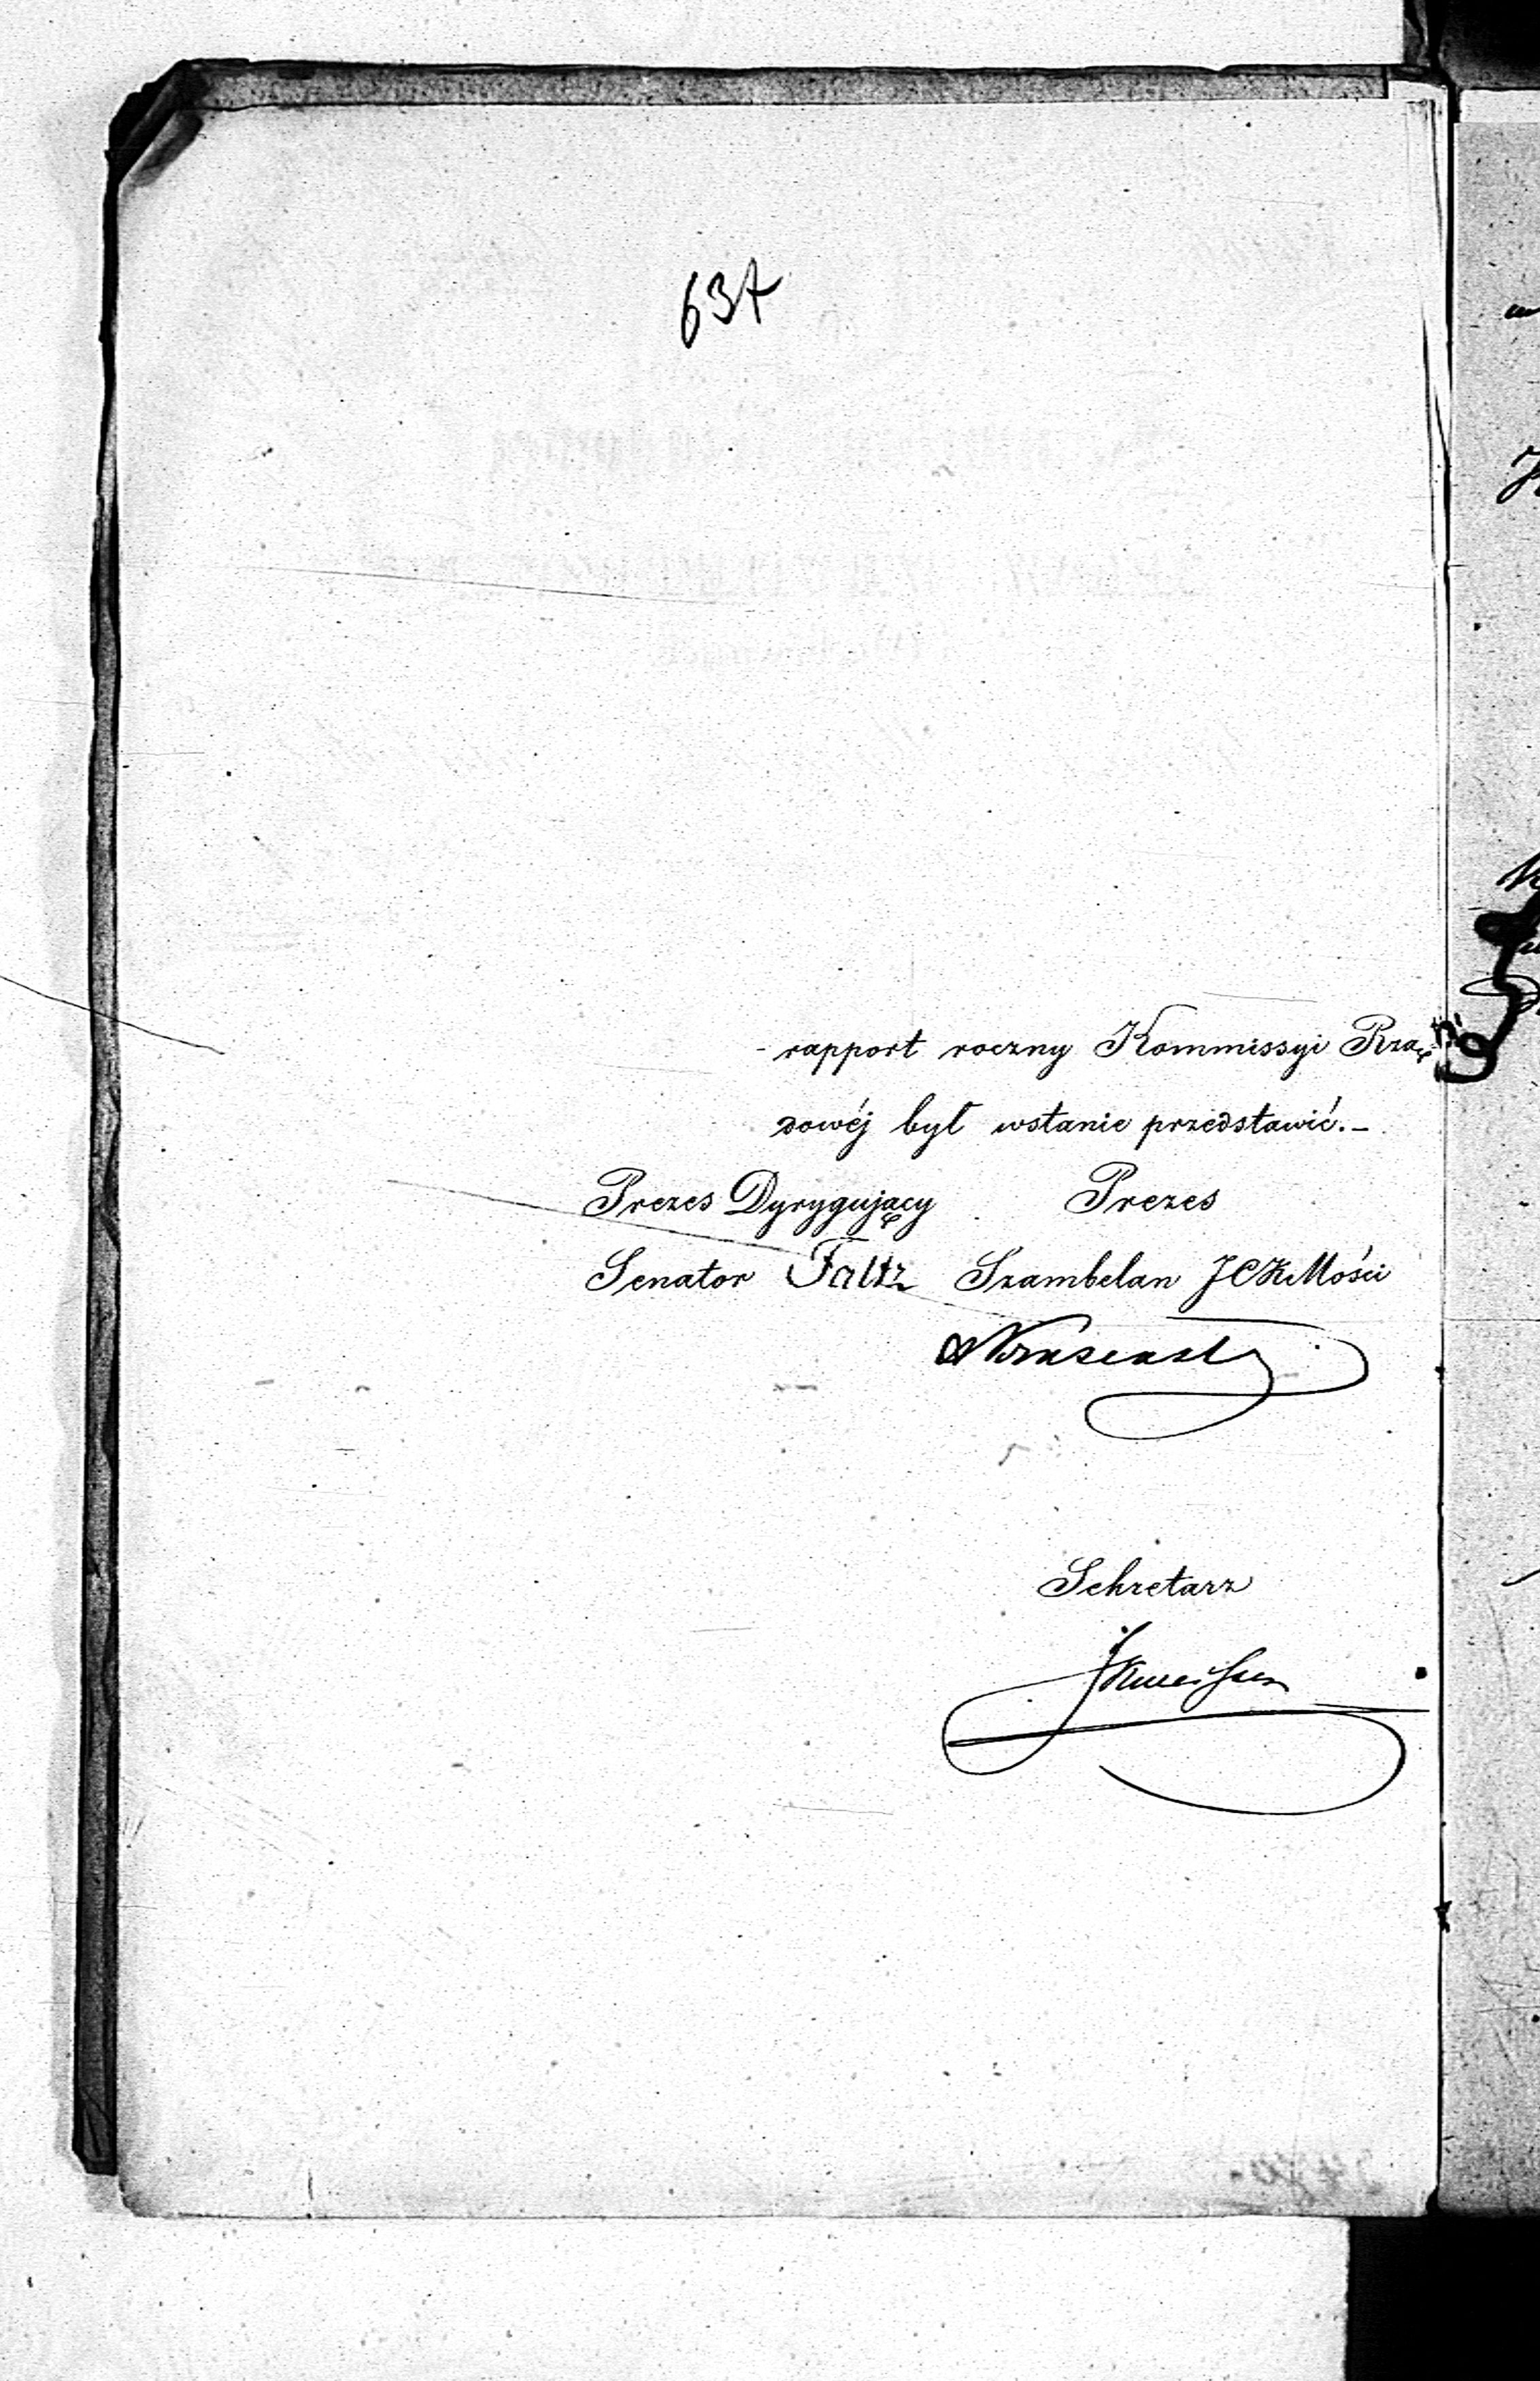 637
- rapport roczny Kommissyi Rzą-
dowéj był wstanie przedstawić. -
Prezes Dyrygujący Prezes
Senator Faltz Szambelan JCKMości
Sekretarz